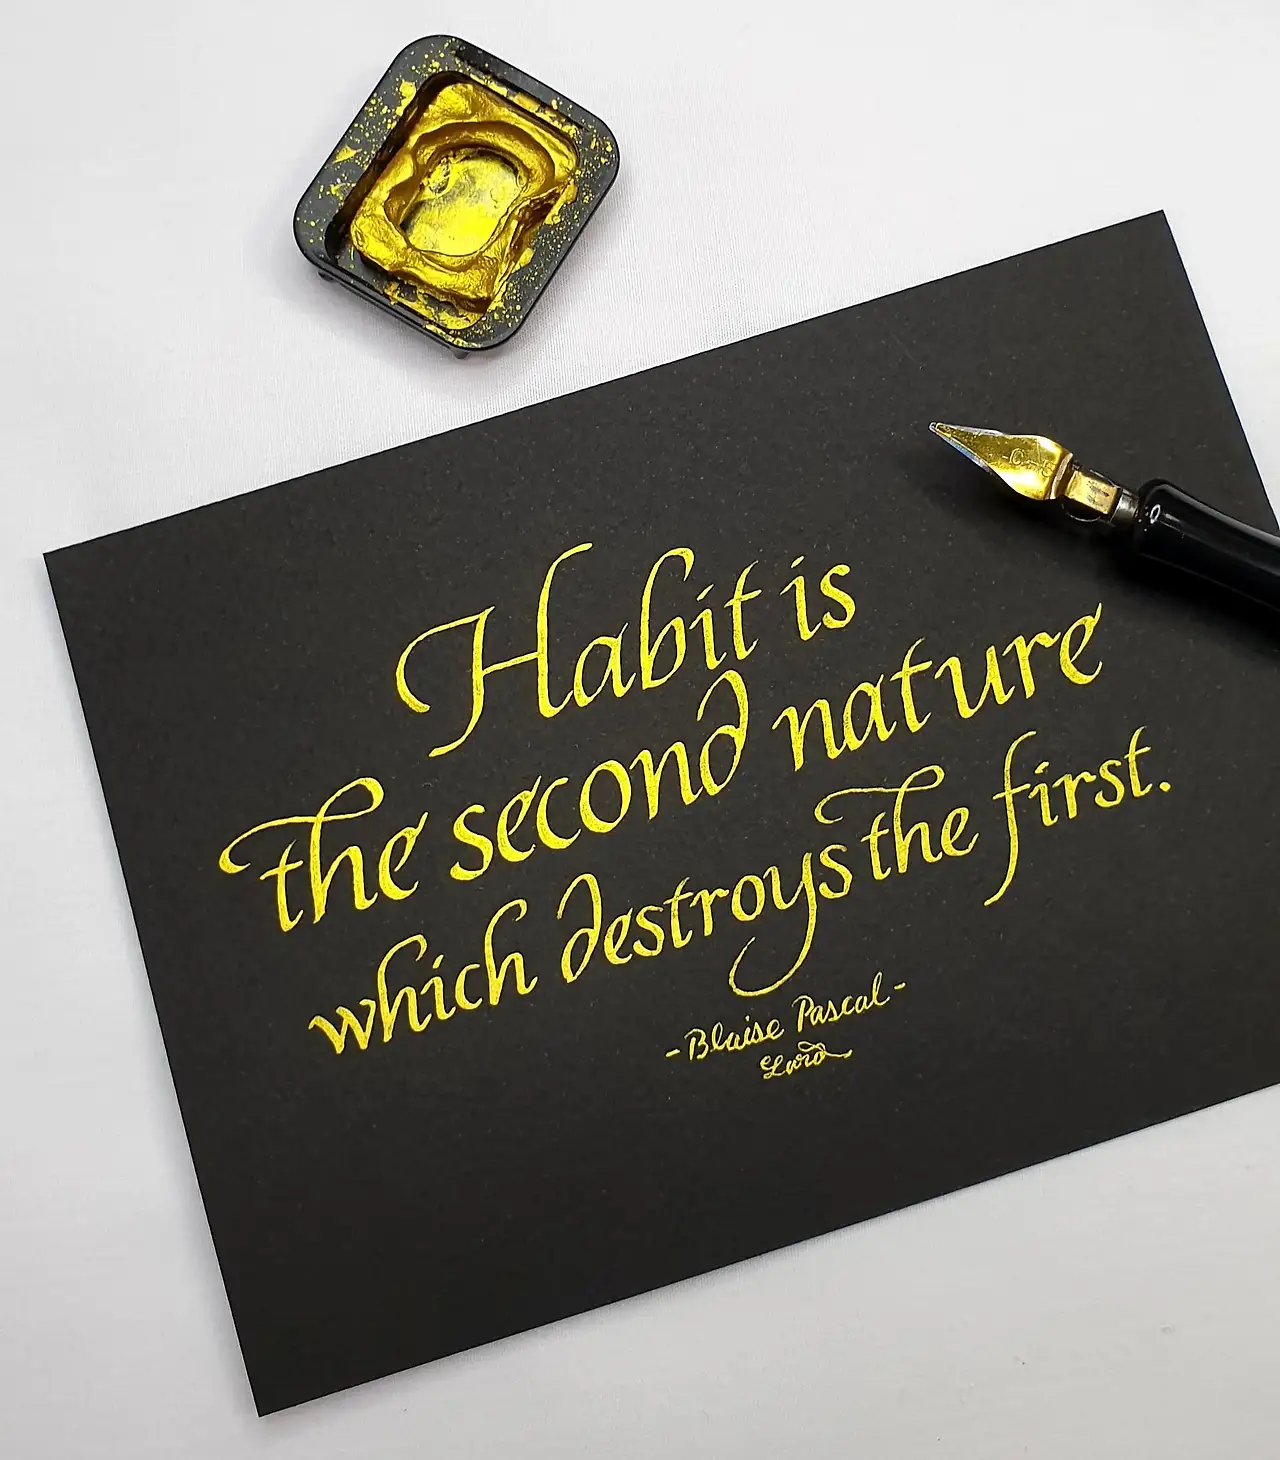 -C-5
Habit is
the second nature
which destroys the first.
-Blaise Pascal-